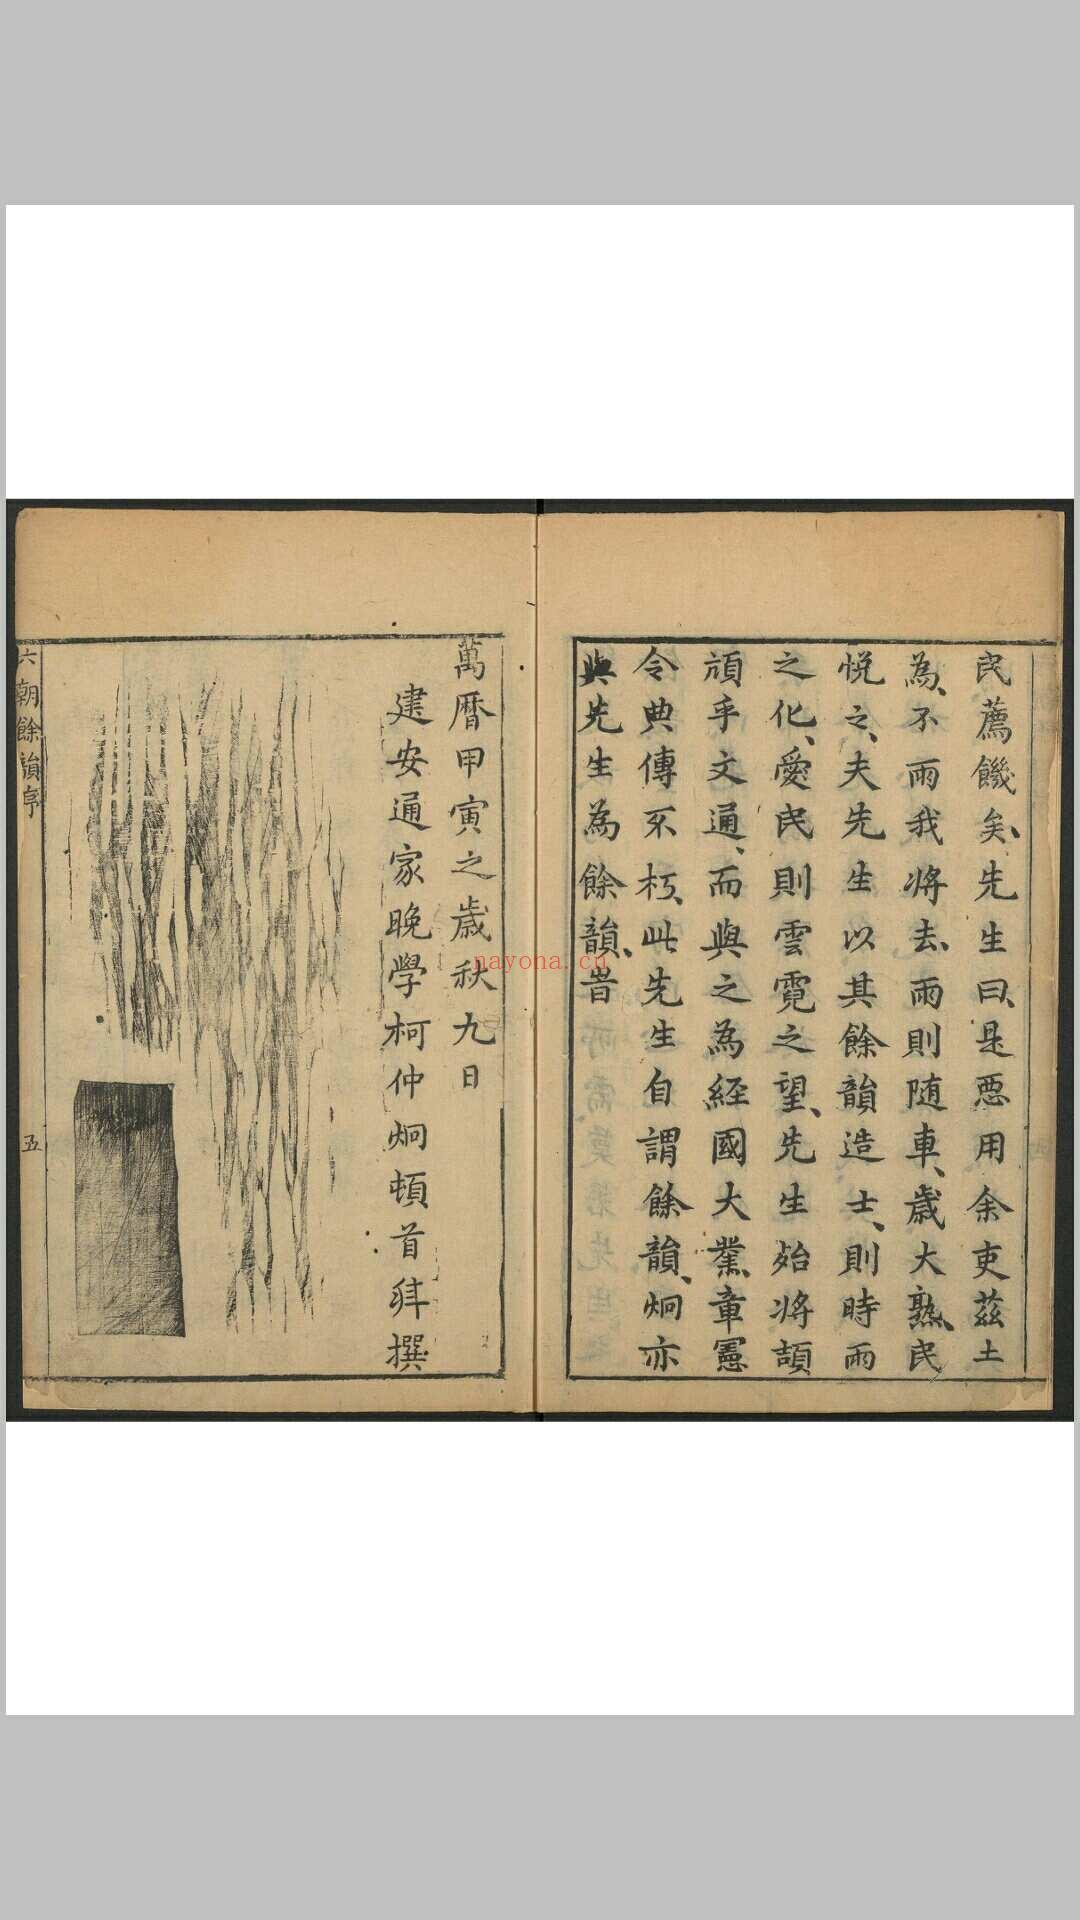 民薦饑矣、先生曰、是惡用余吏茲土
為、不雨我將去、雨則随車、歳大熟、民
悅之、夫先生以其餘韻造士、則時雨
之化、愛民則雲霓之望、先生殆將頡
頏乎文通、而與之為經國大業、章憲
令典傳不朽、此先生自謂餘韻、炯亦
與先生為餘韻、昔
萬曆甲寅之歲秋九日
建安通家晚學柯仲炯頓首拜撰
六朝餘韻序
五
nayona.cn